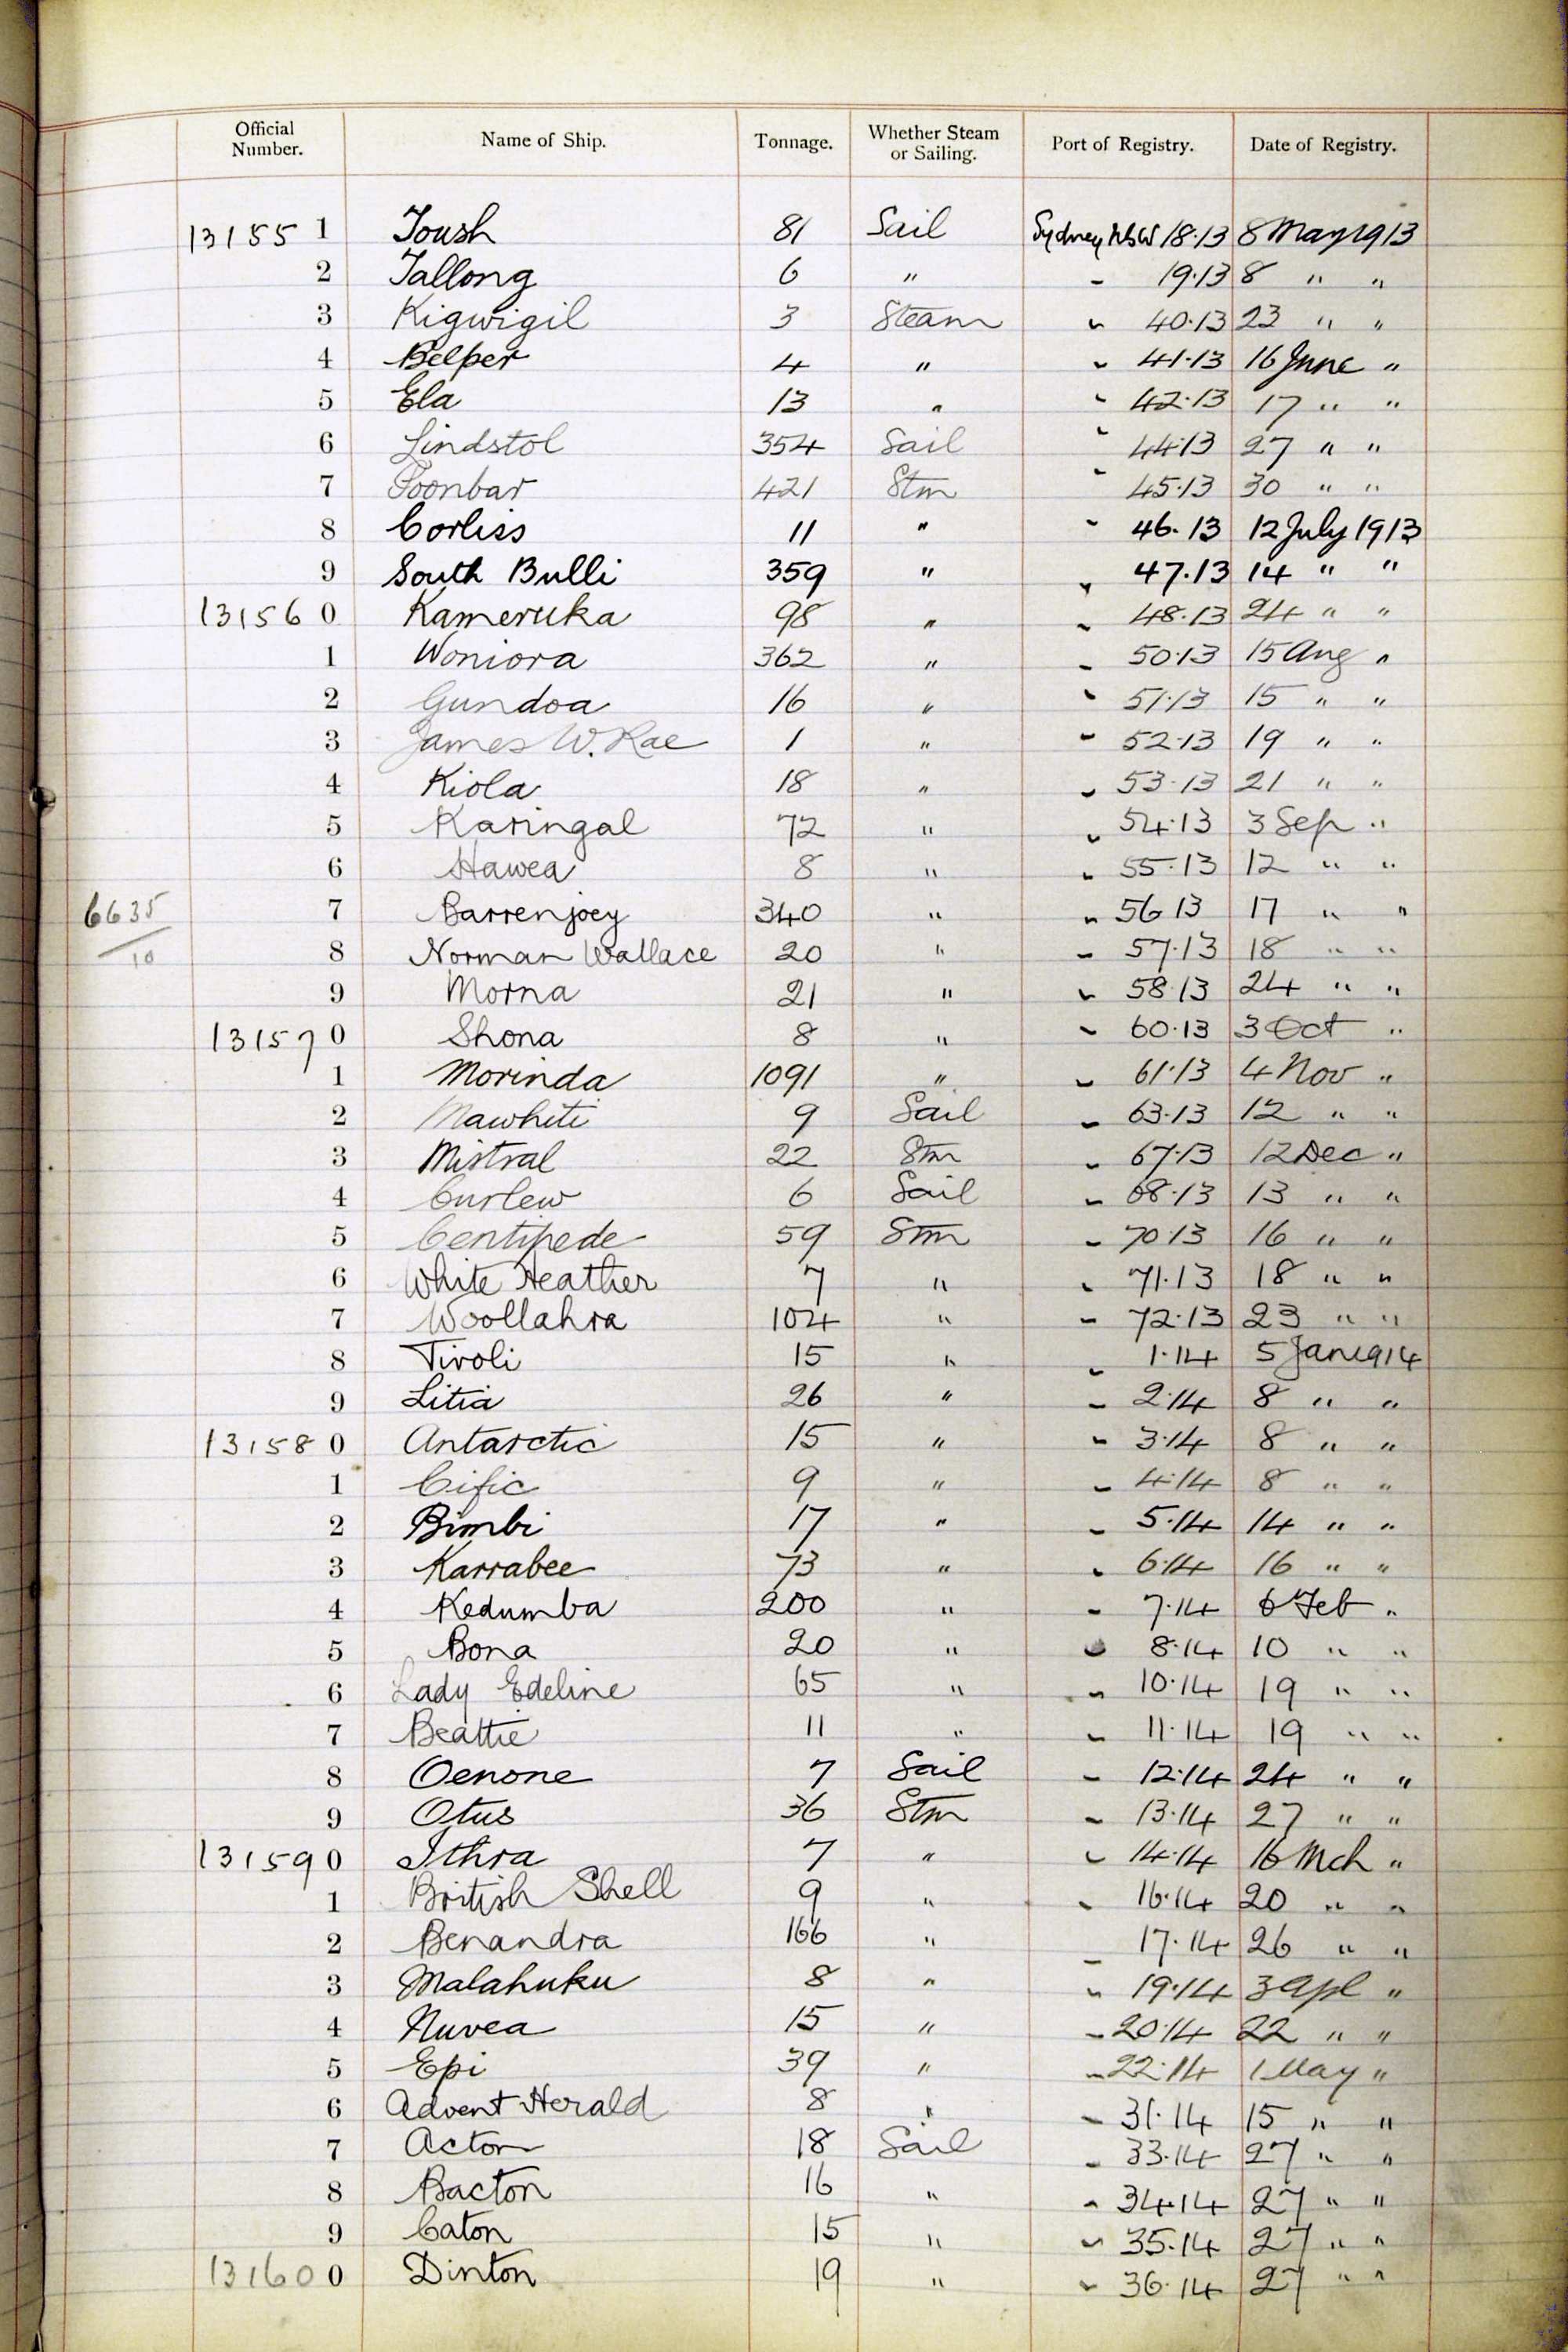 Official Number. Name of Ship. Tonnage. Whether Steam or Sailing. Port of Registry. Date of Registry.
13155 1 Toush 81 Sail Sydney NSW 18.13 8 May 1913
2 Tallong 6 " " 19.13 8 " "
3 Kigwigil 3 Steam " 40.13 23 " "
4 Belper 4 " " 41.13 16 June "
5 Ela 13 " " 42.13 17 " "
6 Lindstol 354 Sail " 44.13 27 " "
7 Toonbar 421 Stm " 45.13 30 " "
8 Corliss 11 " " 46.13 12 July 1913
9 South Bulli 359 " " 47.13 14 " "
13156 0 Kameruka 98 " " 48.13 24 " "
1 Woniora 362 " " 50.13 15 Aug "
2 Gundoa 16 " " 51.13 15 " "
3 James W. Rae 1 " " 52.13 19 " "
4 Kiola 18 " " 53.13 21 " "
5 Karingal 72 " " 54.13 3 Sep "
6 Hawea 8 " " 55.13 12 " "
6635/10 7 Barrenjoey 340 " " 56 13 17 " "
8 Norman Wallace 20 " " 57.13 18 " "
9 Morna 21 " " 58.13 24 " "
13157 0 Shona 8 " " 60.13 3 Oct "
1 Morinda 1091 " " 61.13 4 Nov "
2 Mawhiti 9 Sail " 63.13 12 " "
3 Mistral 22 Stm " 67.13 12 Dec "
4 Curlew 6 Sail " 68.13 13 " "
5 Centipede 59 Stm " 70.13 16 " "
6 White Heather 7 " " 71.13 18 " "
7 Woollahra 104 " " 72.13 23 " "
8 Tivoli 15 " " 1.14 5 Jan 1914
9 Litia 26 " " 2.14 8 " "
13158 0 Antarctic 15 " " 3.14 8 " "
1 Cific 9 " " 4.14 8 " "
2 Bimbi 17 " " 5.14 14 " "
3 Karrabee 73 " " 6.14 16 " "
4 Kedumba 200 " " 7.14 6 Feb "
5 Bona 20 " " 8.14 10 " "
6 Lady Edeline 65 " " 10.14 19 " "
7 Beattie 11 " " 11.14 19 " "
8 Oenone 7 Sail " 12.14 24 " "
9 Otus 36 Stm " 13.14 27 " "
13159 0 Ithra 7 " " 14.14 16 Mch "
1 British Shell 9 " " 16.14 20 " "
2 Benandra 166 " " 17.14 26 " "
3 Malahuku 8 " " 19.14 3 Apl "
4 Nuvea 15 " " 20.14 22 " "
5 Epi 39 " " 22.14 1 May "
6 Advent Herald 8 " " 31.14 15 " "
7 Acton 18 Sail " 33.14 27 " "
8 Bacton 16 " " 34.14 27 " "
9 Caton 15 " " 35.14 27 " "
13160 0 Dinton 19 " " 36.14 27 " "